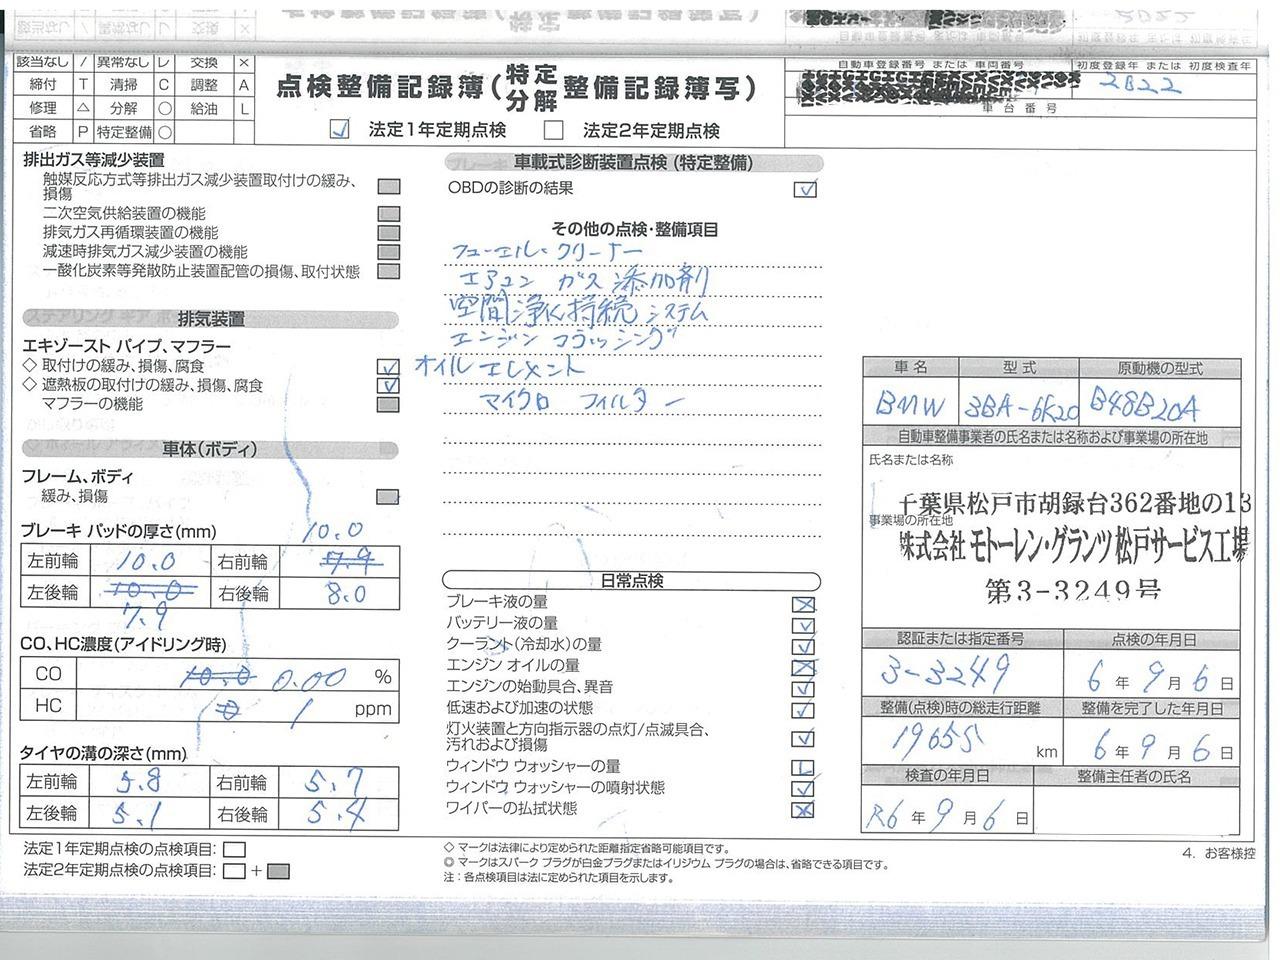 該当なし / 異常なし レ 交換 ×
締付 T 清掃 C 調整 A
修理 △ 分解 ○ 給油 L
省略 P 特定整備 ○
点検整備記録簿(特定分解整備記録簿写)
✓ 法定1年定期点検 法定2年定期点検
自動車登録番号 または 車両番号
初度登録年 または 初度検査年
2022
車台番号
排出ガス等減少装置
触媒反応方式等排出ガス減少装置取付けの緩み、
損傷
二次空気供給装置の機能
排気ガス再循環装置の機能
減速時排気ガス減少装置の機能
一酸化炭素等発散防止装置配管の損傷、取付状態
排気装置
エキゾースト パイプ、マフラー
◇ 取付けの緩み、損傷、腐食 ✓
◇ 遮熱板の取付けの緩み、損傷、腐食 ✓
マフラーの機能
車体(ボディ)
フレーム、ボディ
緩み、損傷
ブレーキ パッドの厚さ(mm) 10.0
左前輪 10.0 右前輪 7.9
左後輪 10.0 右後輪 8.0
7.9
CO、HC濃度(アイドリング時)
CO 10.0 0.00 %
HC 0 1 ppm
タイヤの溝の深さ(mm)
左前輪 5.8 右前輪 5.7
左後輪 5.1 右後輪 5.4
法定1年定期点検の点検項目:
法定2年定期点検の点検項目: +
車載式診断装置点検 (特定整備)
OBDの診断の結果 ✓
その他の点検・整備項目
フューエル・クリーナー
エアコン ガス 添加剤
空間浄化持続システム
エンジン フラッシング
オイル エレメント
マイクロ フィルター
日常点検
ブレーキ液の量 ×
バッテリー液の量 ✓
クーラント(冷却水)の量 ✓
エンジン オイルの量 ×
エンジンの始動具合、異音 ✓
低速および加速の状態 ✓
灯火装置と方向指示器の点灯/点滅具合、
汚れおよび損傷 ✓
ウィンドウ ウォッシャーの量 L
ウィンドウ ウォッシャーの噴射状態 ✓
ワイパーの払拭状態 ×
◇ マークは法律により定められた距離指定省略可能項目です。
◎ マークはスパーク プラグが白金プラグまたはイリジウム プラグの場合は、省略できる項目です。
注:各点検項目は法に定められた項目を示します。
車名 型式 原動機の型式
BMW 3BA-6K20 B48B20A
自動車整備事業者の氏名または名称および事業場の所在地
氏名または名称
千葉県松戸市胡録台362番地の13
事業場の所在地
株式会社 モトーレン・グランツ 松戸サービス工場
第3-3249号
認証または指定番号 点検の年月日
3-3249 6年9月6日
整備(点検)時の総走行距離 整備を完了した年月日
19655 km 6年9月6日
検査の年月日 整備主任者の氏名
R6年9月6日
4. お客様控